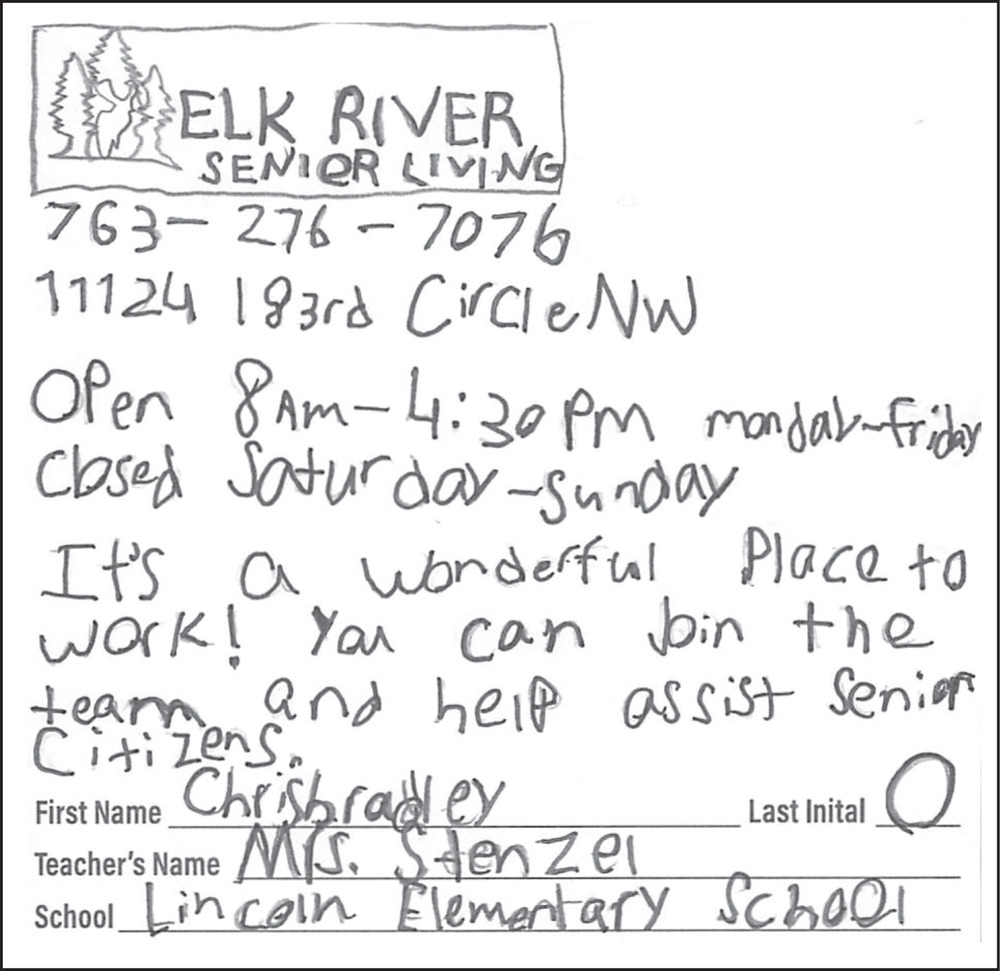 ELK RIVER
SENIOR LIVING
763-276-7076
11124 183rd Circle NW
Open 8Am-4:30 Pm monday-friday
Closed Saturday-Sunday
It's a wonderful Place to
work! You can Join the
team and help assist Senior
Citizens.
First Name Chrisbradley Last Inital O
Teacher's Name Mrs. Stenzel
School Lincoln Elementary School